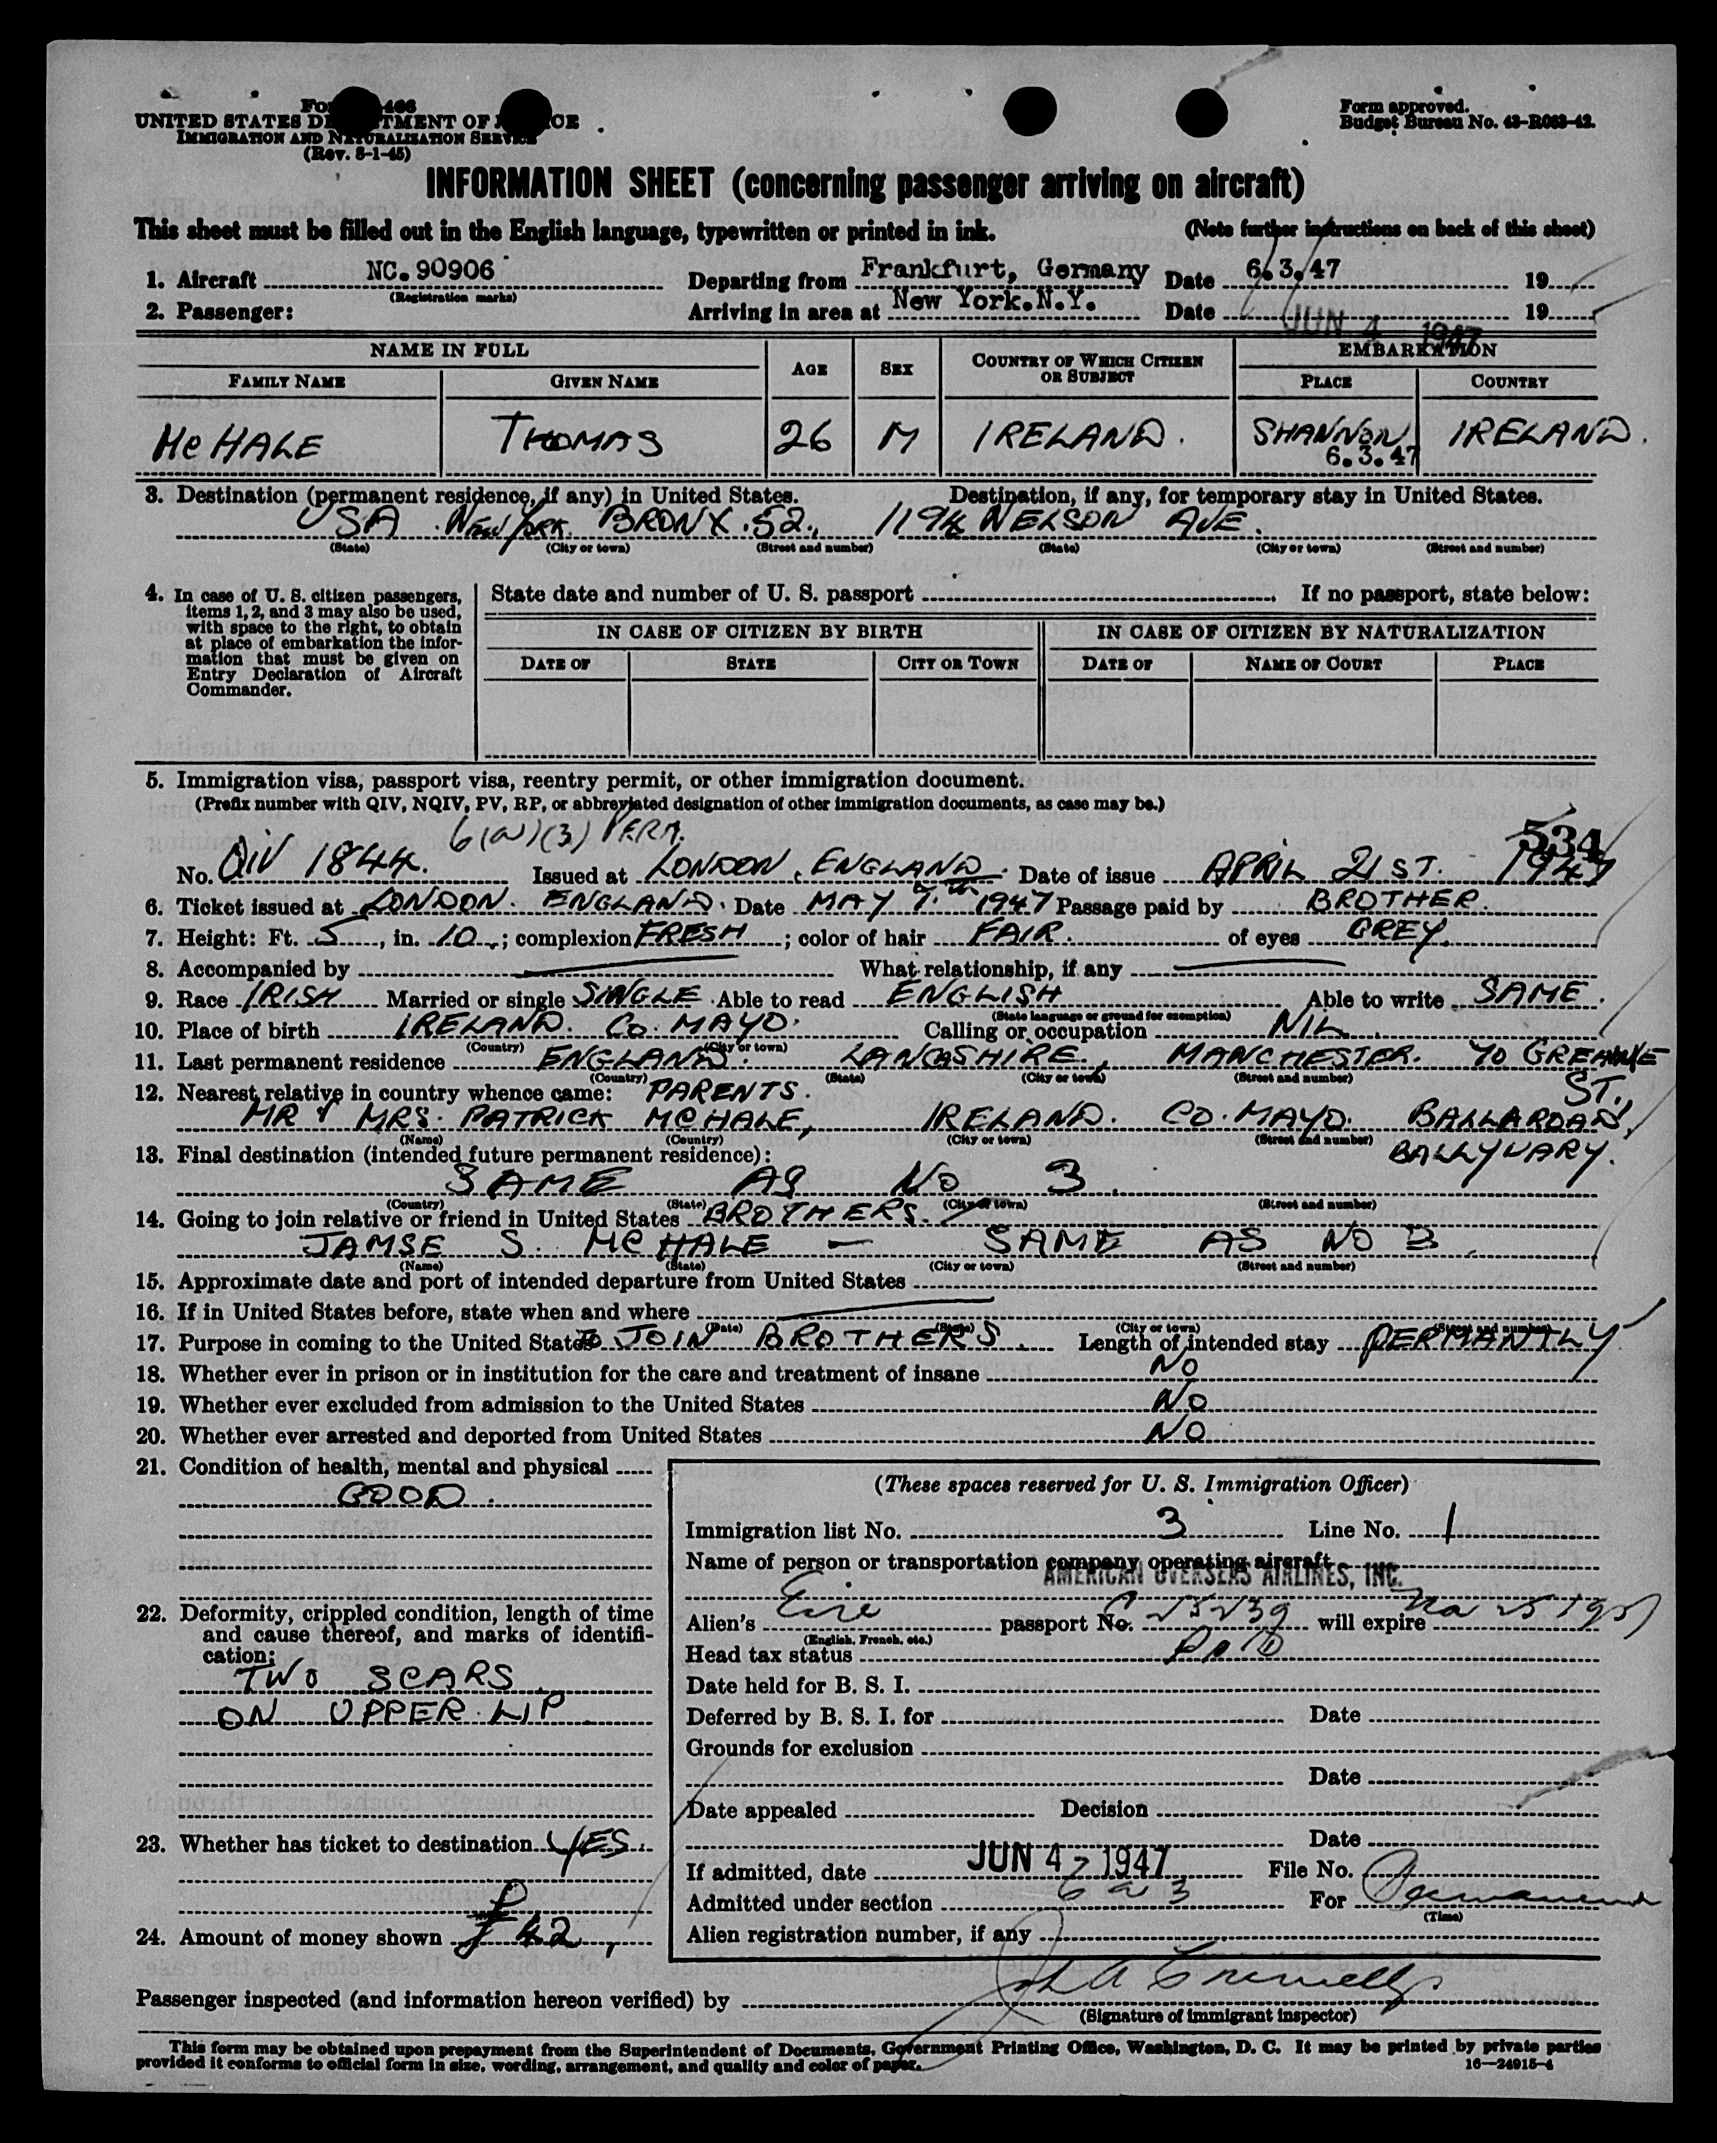 UNITED STATES DEPARTMENT OF JUSTICE
IMMIGRATION AND NATURALIZATION SERVICE
(Rev. 8-1-45)
Form approved.
Budget Bureau No. 43-R063-42.
INFORMATION SHEET (concerning passenger arriving on aircraft)
This sheet must be filled out in the English language, typewritten or printed in ink. (Note further instructions on back of this sheet)
1. Aircraft NC.90906 Departing from Frankfurt, Germany Date 6.3.47 19
(Registration marks)
2. Passenger: Arriving in area at New York.N.Y. Date JUN 4 1947 19
NAME IN FULL AGE SEX COUNTRY OF WHICH CITIZEN OR SUBJECT EMBARKATION
FAMILY NAME GIVEN NAME PLACE COUNTRY
McHALE THOMAS 26 M IRELAND. SHANNON IRELAND.
6.3.47
3. Destination (permanent residence, if any) in United States. Destination, if any, for temporary stay in United States.
USA. NEW YORK. BRONX.52., 1194 NELSON AVE.
(State) (City or town) (Street and number) (State) (City or town) (Street and number)
4. In case of U. S. citizen passengers, items 1, 2, and 3 may also be used, with space to the right, to obtain at place of embarkation the information that must be given on Entry Declaration of Aircraft Commander.
State date and number of U. S. passport If no passport, state below:
IN CASE OF CITIZEN BY BIRTH IN CASE OF CITIZEN BY NATURALIZATION
DATE OF STATE CITY OR TOWN DATE OF NAME OF COURT PLACE
5. Immigration visa, passport visa, reentry permit, or other immigration document.
(Prefix number with QIV, NQIV, PV, RP, or abbreviated designation of other immigration documents, as case may be.)
6(a)(3) PERM. 534
No. QIV 1844. Issued at LONDON, ENGLAND. Date of issue APRIL 21ST. 1947
6. Ticket issued at LONDON. ENGLAND. Date MAY 7.th 1947 Passage paid by BROTHER.
7. Height: Ft. 5, in. 10.; complexion FRESH; color of hair FAIR. of eyes GREY.
8. Accompanied by What relationship, if any
9. Race IRISH Married or single SINGLE Able to read ENGLISH Able to write SAME.
(State language or ground for exemption)
10. Place of birth IRELAND. Co. MAYO. Calling or occupation NIL.
(Country) (City or town)
11. Last permanent residence ENGLAND. LANCASHIRE., MANCHESTER. 40 GREAME ST.
(Country) (State) (City or town) (Street and number)
12. Nearest relative in country whence came: PARENTS.
MR & MRS. PATRICK MCHALE, IRELAND. CO. MAYO. BALLAROAN, BALLYVARY.
(Name) (Country) (City or town) (Street and number)
13. Final destination (intended future permanent residence):
SAME AS NO 3.
(Country) (State) (City or town) (Street and number)
14. Going to join relative or friend in United States BROTHERS.
JAMSE S. MCHALE — SAME AS NO 3.
(Name) (State) (City or town) (Street and number)
15. Approximate date and port of intended departure from United States
16. If in United States before, state when and where
(Date) (State) (City or town) (Street and number)
17. Purpose in coming to the United States TO JOIN BROTHERS. Length of intended stay PERMANTLY
18. Whether ever in prison or in institution for the care and treatment of insane NO
19. Whether ever excluded from admission to the United States NO
20. Whether ever arrested and deported from United States NO
21. Condition of health, mental and physical
GOOD.
22. Deformity, crippled condition, length of time and cause thereof, and marks of identification:
TWO SCARS
ON UPPER LIP
23. Whether has ticket to destination YES.
24. Amount of money shown £ 42,
(These spaces reserved for U. S. Immigration Officer)
Immigration list No. 3 Line No. 1
Name of person or transportation company operating aircraft
AMERICAN OVERSEAS AIRLINES, INC.
Alien's Eire passport No. will expire
(English, French, etc.)
Head tax status Paid
Date held for B. S. I.
Deferred by B. S. I. for Date
Grounds for exclusion
Date
Date appealed Decision
Date
If admitted, date JUN 4 - 1947 File No.
Admitted under section 6 a 3 For Permanent
(Time)
Alien registration number, if any
Passenger inspected (and information hereon verified) by
(Signature of immigrant inspector)
This form may be obtained upon prepayment from the Superintendent of Documents, Government Printing Office, Washington, D. C. It may be printed by private parties
provided it conforms to official form in size, wording, arrangement, and quality and color of paper. 16—24915-4